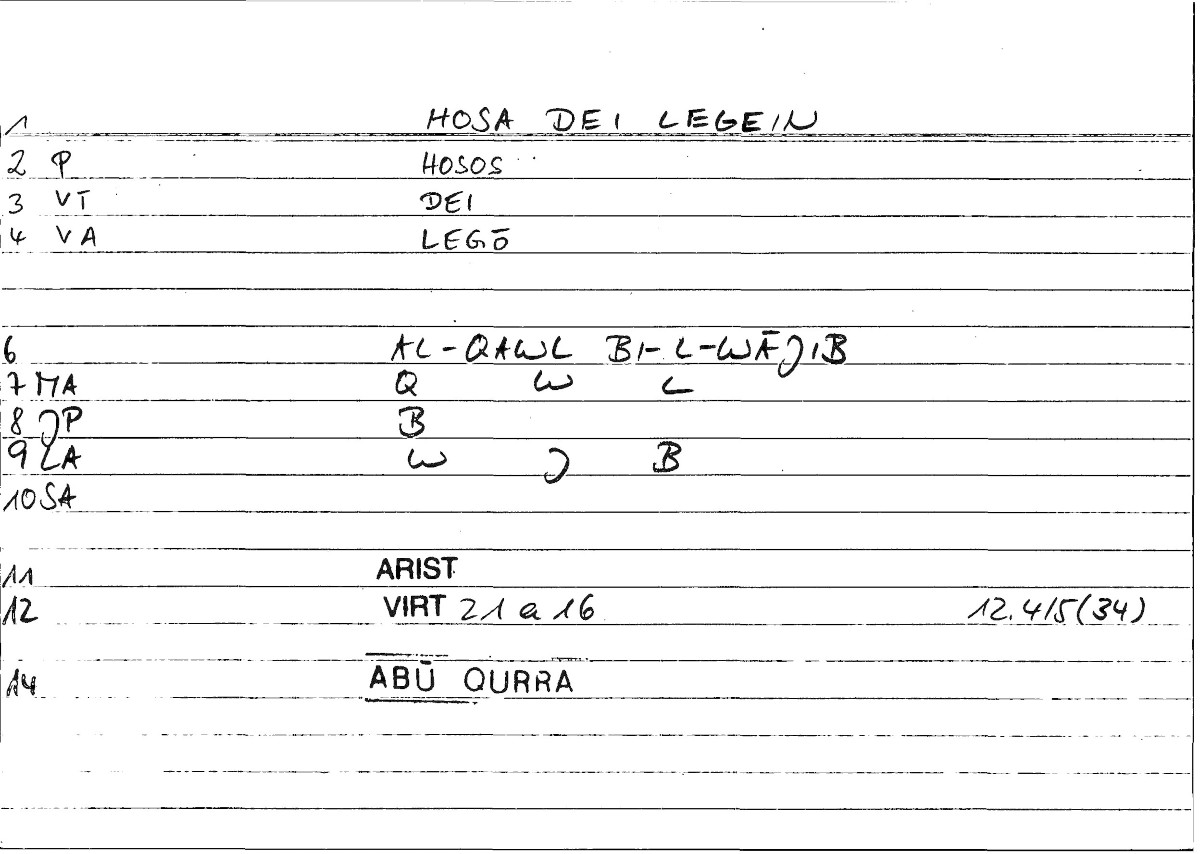 1 HOSA DEI LEGEIN
2 P HOSOS
3 VT DEI
4 VA LEGŌ
6 AL-QAWL BI-L-WĀJIB
7 MA Q W L
8 JP B
9 ZA W J B
10 SA
11 ARIST
12 VIRT 21 a 16 12.4/5(34)
14 ABŪ QURRA